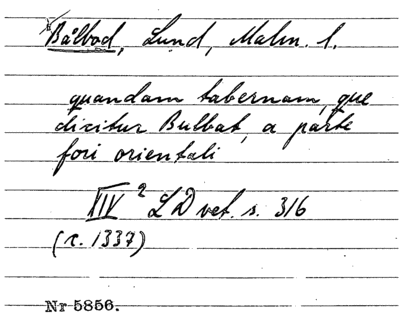 Bålbod, Lund, Malm. l.
quandam tabernam, que
dicitur Bulbat, a parte
fori orientali
XIV 2 LD vet. s. 316
(c. 1337)
Nr 5856.